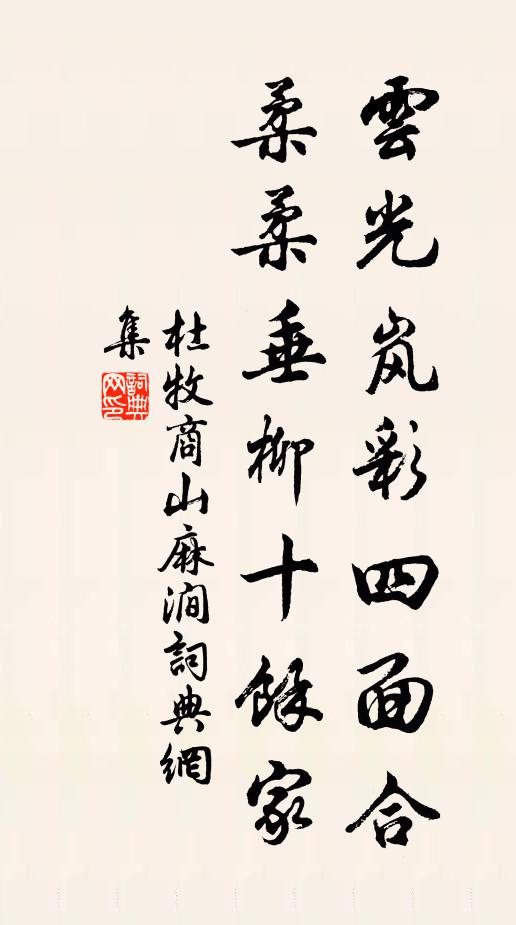 雲光岚彩四面合
柔柔垂柳十餘家
杜牧商山麻澗詞典網
集
詞典网印